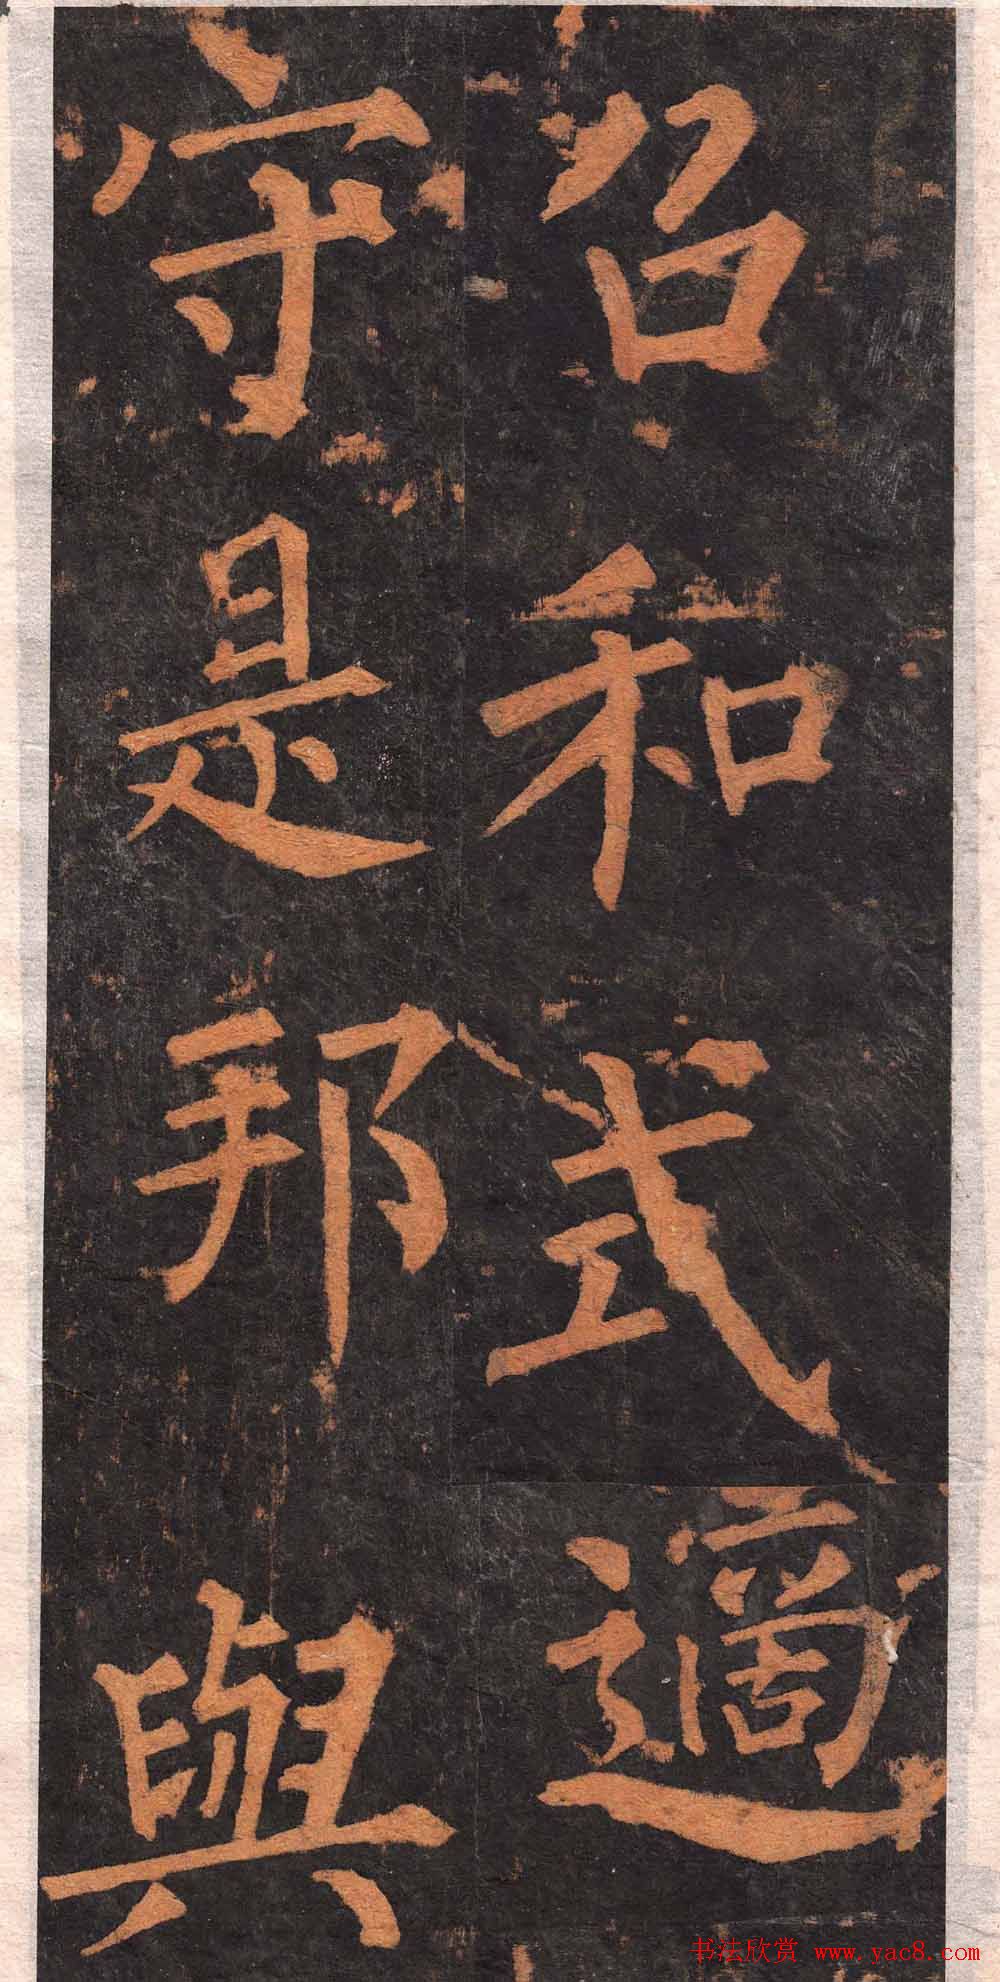 召和式適
守是邦與
书法欣赏 www.yac8.com